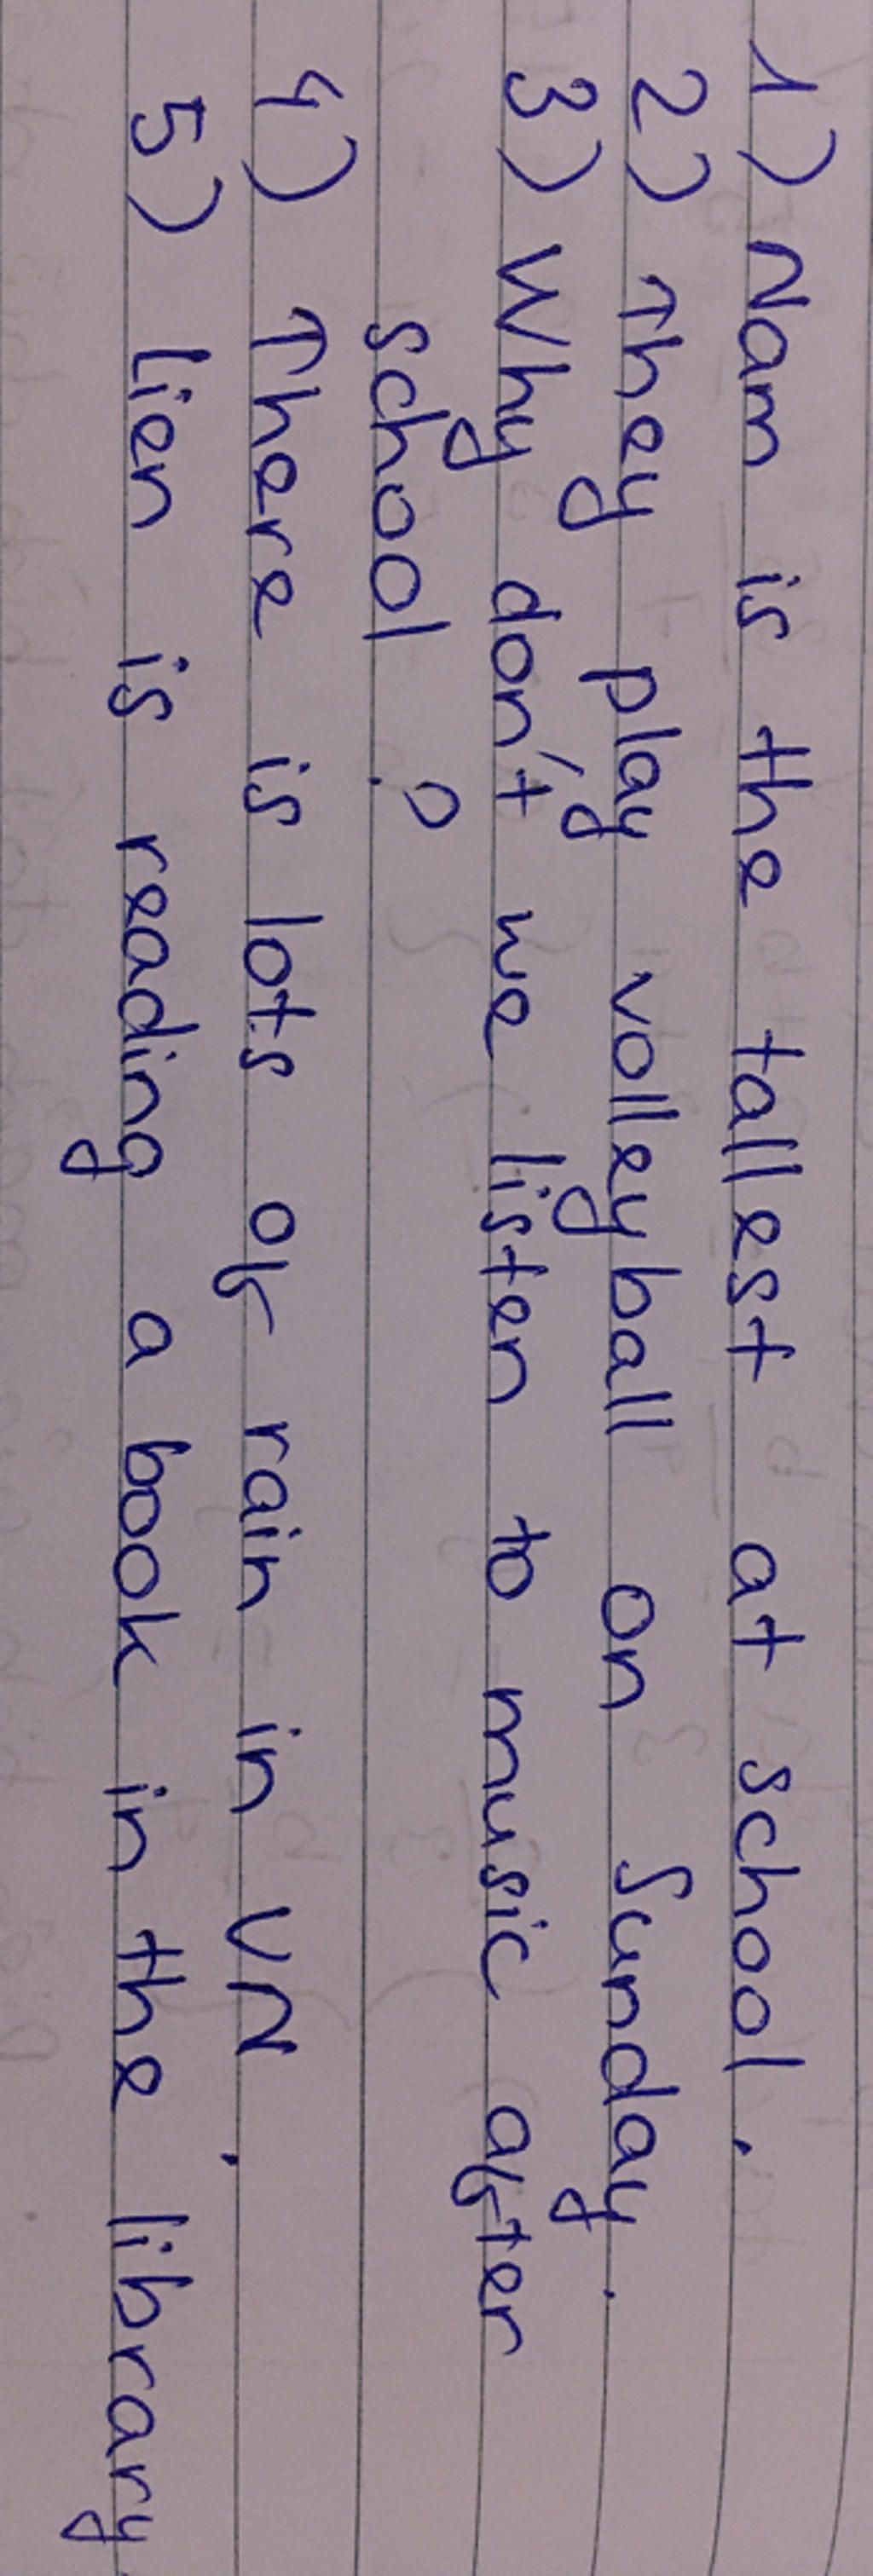 1) Nam is the tallest at school.
2) They play volleyball on Sunday.
3) Why don't we listen to music after
school ?
4) There is lots of rain in VN.
5) lien is reading a book in the library